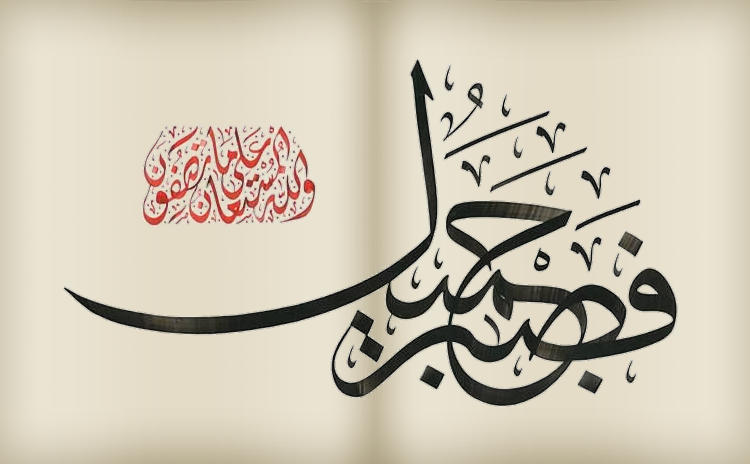 فَصَبْرٌ جَمِيلٌ
والله المستعان على ما تصفون